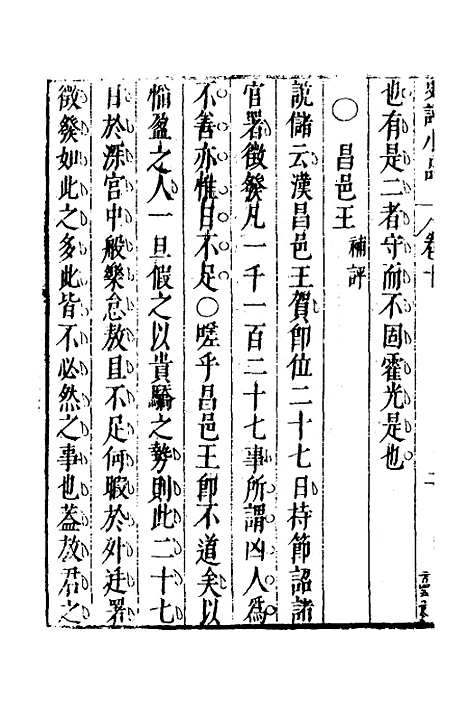 也有是二者守而不固霍光是也
○昌邑王 補評
說儲云漢昌邑王賀卽位二十七日持節詔諸
官署徵發凡一千一百二十七事所謂凶人爲
不善亦惟日不足○嗟乎昌邑王卽不道矣以
惛盈之人一旦假之以貴驕之勢則此二十七
日於深宮中般樂怠敖且不足何暇於外廷署
徵發如此之多此皆不必然之事也蓋放君之